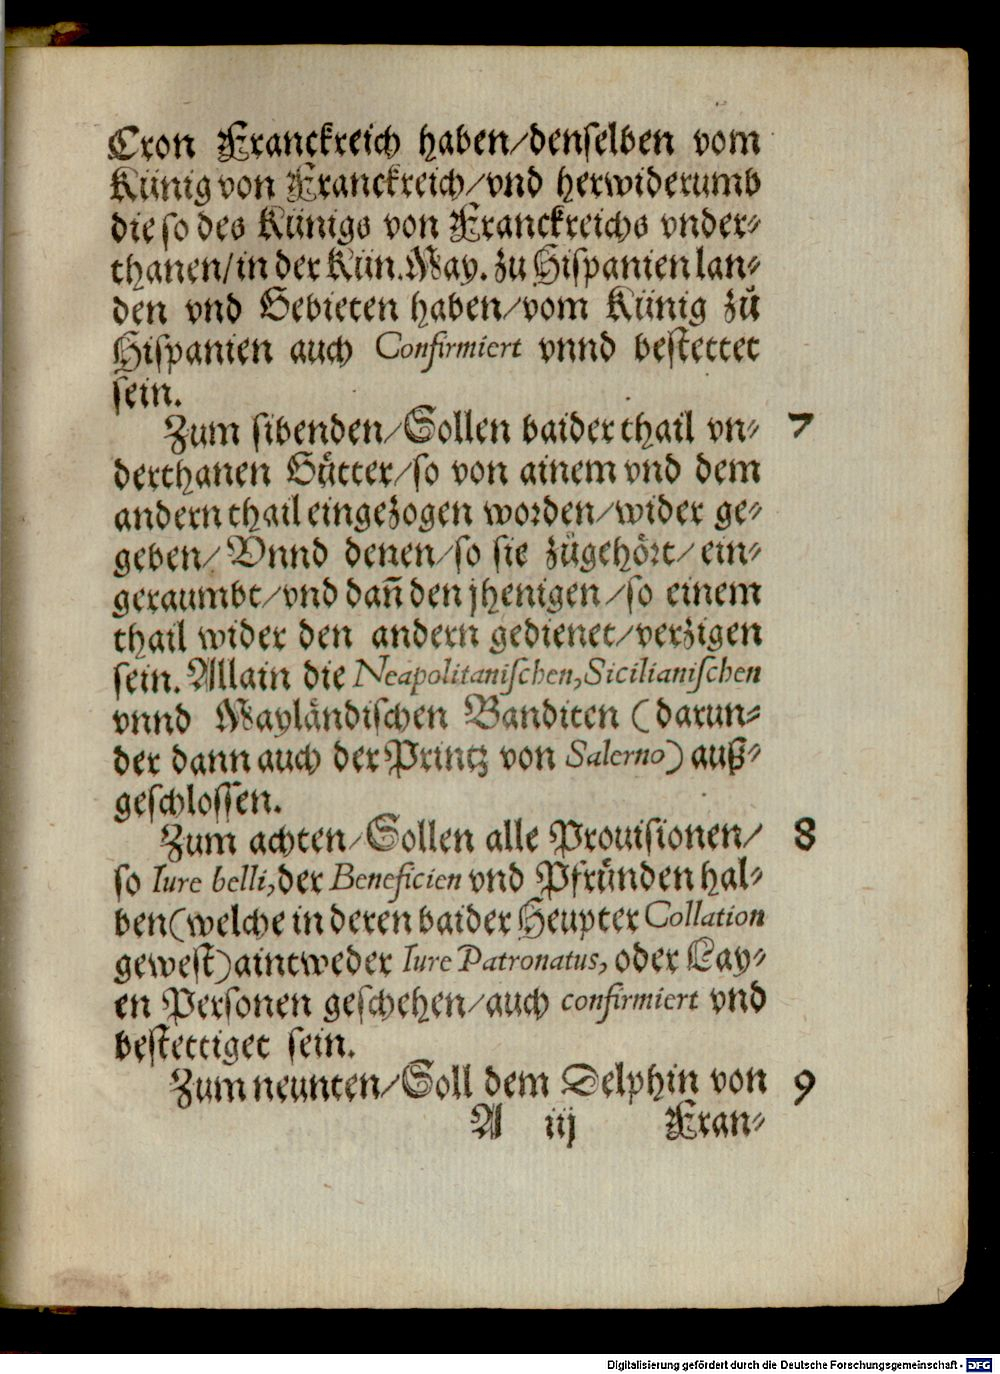 Cron Franckreich haben/denselben vom
Künig von Franckreich/vnd herwiderumb
die so des Künigs von Franckreichs vnder-
thanen/in der Kün. May. zu Hispanien lan-
den vnd Gebieten haben/vom Künig zů
Hispanien auch Confirmiert vnnd bestettet
sein.
Zum sibenden/Sollen baider thail vn- 7
derthanen Gůtter/so von ainem vnd dem
andern thail eingezogen worden/wider ge-
geben/Vnnd denen/so sie zůgehört/ein-
geraumbt/vnd dañ den jhenigen/so einem
thail wider den andern gedienet/verzigen
sein. Allain die Neapolitanischen, Sicilianischen
vnnd Mayländischen Banditen (darun-
der dann auch der Printz von Salerno) auß-
geschlossen.
Zum achten/Sollen alle Prouisionen/ 8
so Iure belli, der Beneficien vnd Pfründen hal-
ben (welche in deren baider Heupter Collation
gewest) aintweder Iure Patronatus, oder Lay-
en Personen geschehen/auch confirmiert vnd
bestettiget sein.
Zum neunten/Soll dem Delphin von 9
A iij Fran-
Digitalisierung gefördert durch die Deutsche Forschungsgemeinschaft - DFG